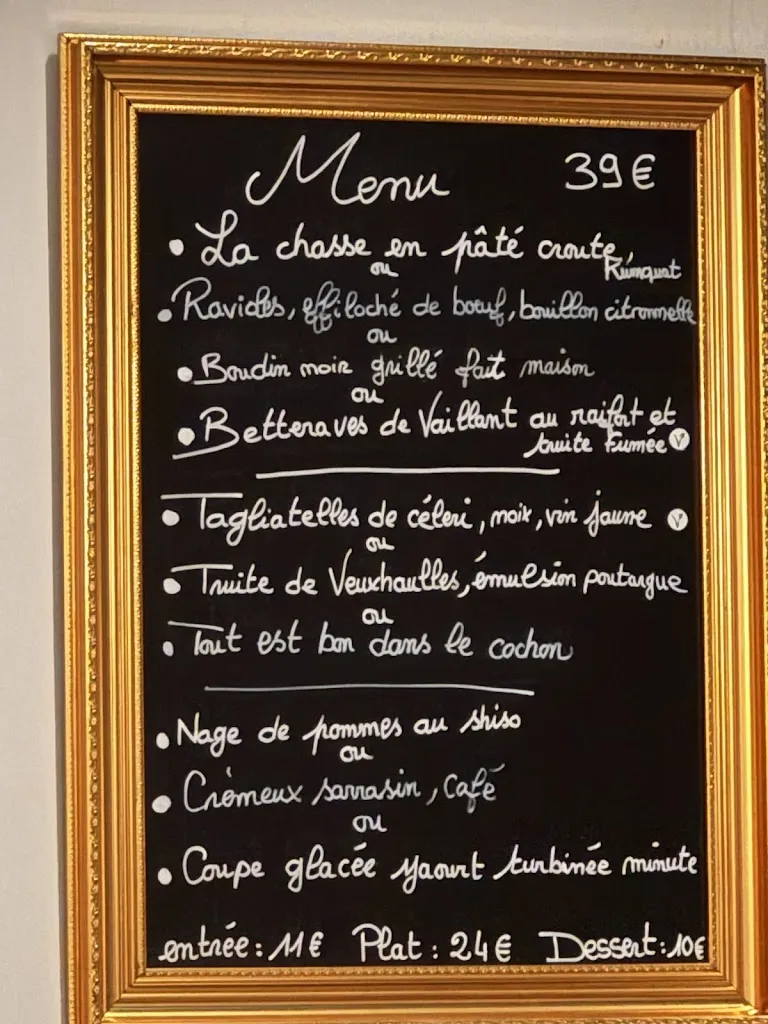 Menu 39€
• La chasse en pâté croute,
Kumquat
ou
• Ravioles, effiloché de bœuf, bouillon citronnelle
ou
• Boudin noir grillé fait maison
ou
• Betteraves de Vaillant au raifort et
truite fumée Ⓥ
• Tagliatelles de céleri, noix, vin jaune Ⓥ
ou
• Truite de Veuxhaulles, émulsion poutargue
ou
• Tout est bon dans le cochon
• Nage de pommes au shiso
ou
• Crèmeux sarrasin, Café
ou
• Coupe glacée yaourt turbinée minute
entrée: 11€ Plat: 24€ Dessert: 10€